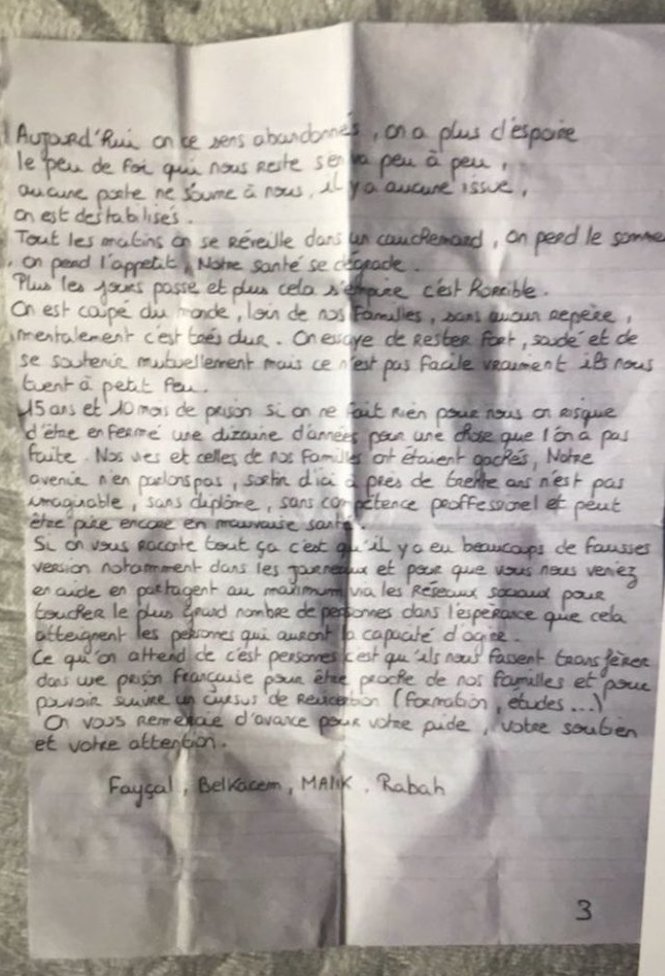 Aujourd'hui on ce sens abandonnés, on a plus d'espoire
le peu de foi qui nous reste s'en va peu à peu,
aucune porte ne s'ouvre à nous, il y a aucune issue,
on est destabilisés.
Tout les matins on se réveille dans un cauchemard, on perd le somme
, on perd l'appetit, Notre santé se dégrade.
Plus les jours passe et plus cela s'empire c'est horrible.
On est coupé du monde, loin de nos familles, sans aucun repère,
mentalement c'est très dur. On essaye de rester fort, soudé et de
se soutenir mutuellement mais ce n'est pas facile vraiment ils nous
tuent à petit feu.
15 ans et 10 mois de prison si on ne fait rien pour nous on risque
d'être enfermé une dizaine d'années pour une chose que l'on a pas
faite. Nos vies et celles de nos familles ont étaient gachés, Notre
avenir n'en parlons pas, sortir d'ici à près de trente ans n'est pas
imaginable, sans diplôme, sans compétence proffessionel et peut
être pire encore en mauvaise santé.
Si on vous raconte tout ça c'est qu'il y a eu beaucoups de fausses
version notamment dans les journeaux et pour que vous nous veniez
en aide en partagent au maximum via les Réseaux sociaux pour
toucher le plus grand nombre de personnes dans l'espérance que cela
atteignent les personnes qui auront la capacité d'agir.
Ce qu'on attend de c'est personnes c'est qu'ils nous fassent transférer
dans une prison française pour être proche de nos familles et pour
pouvoir suivre un cursus de Reinsertion (formation, études...)
On vous remercie d'avance pour votre aide, votre soutien
et votre attention.
Fayçal, Belkacem, MALIK, Rabah
3